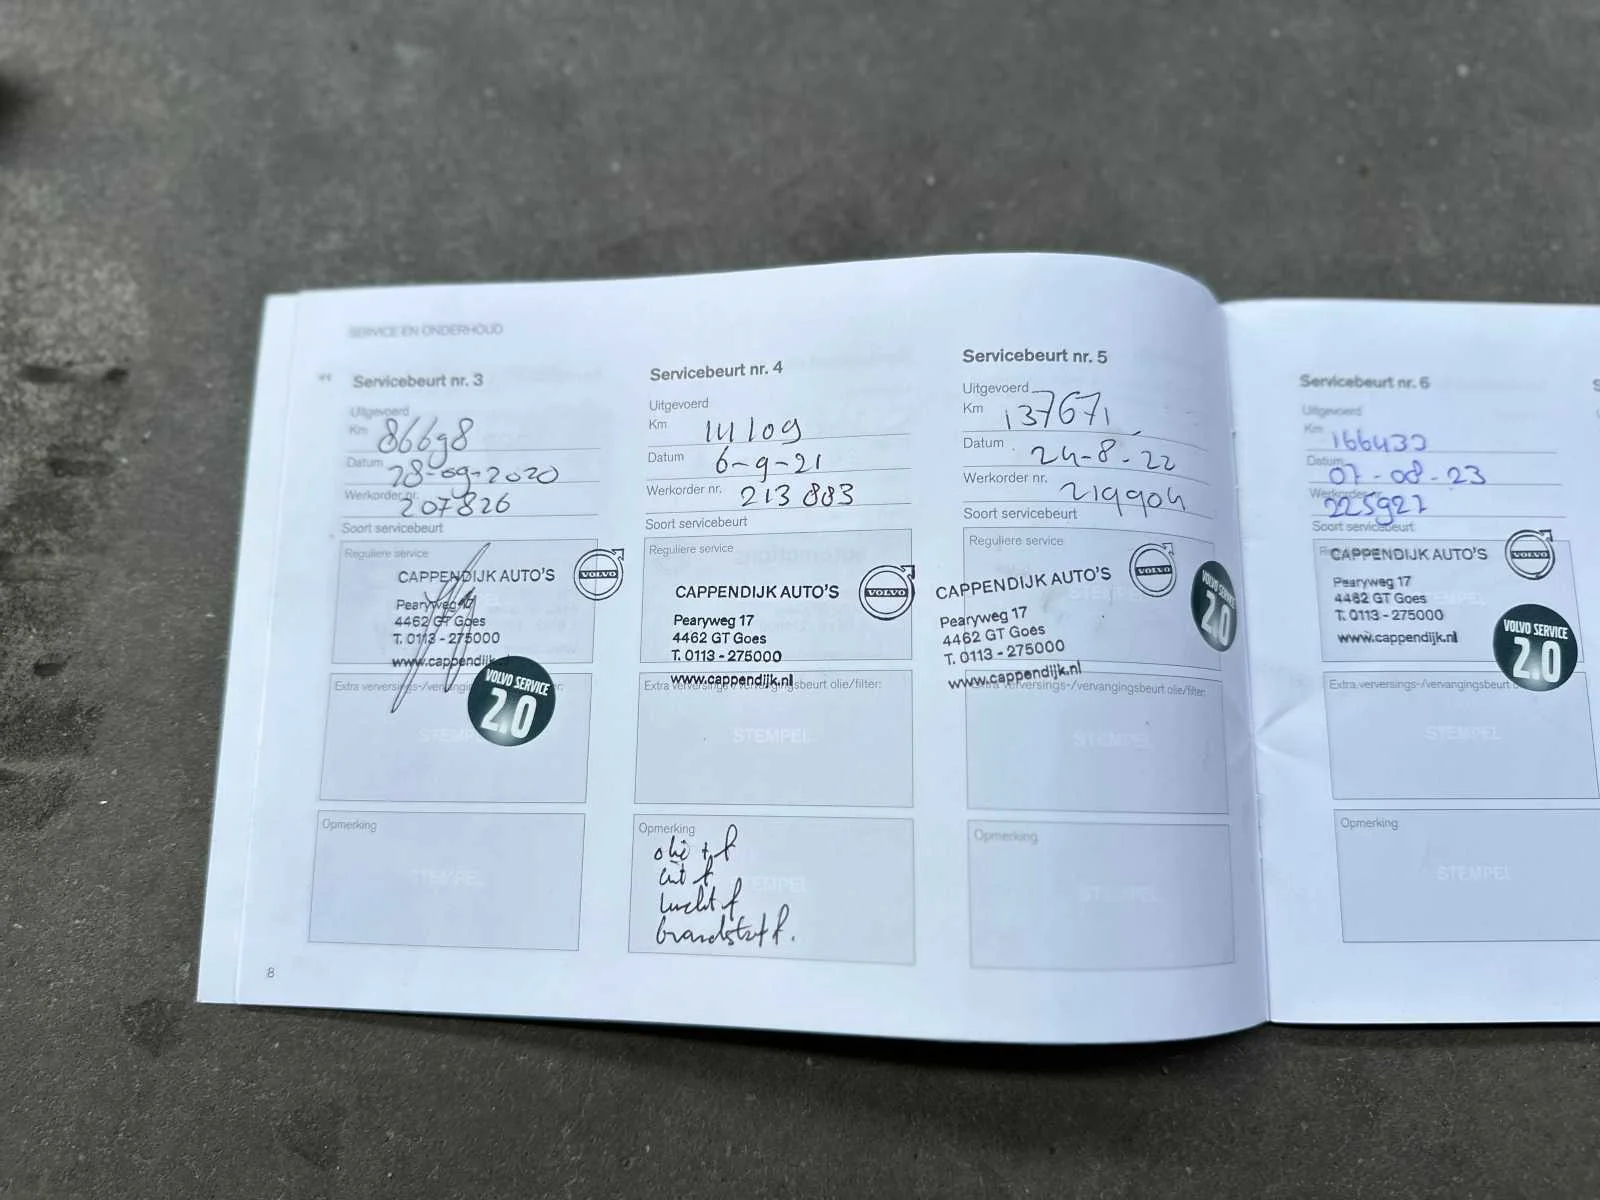 SERVICE EN ONDERHOUD
Servicebeurt nr. 3
Uitgevoerd
Km 86698
Datum 28-09-2020
Werkorder nr. 207826
Soort servicebeurt
Reguliere service
CAPPENDIJK AUTO'S
VOLVO
Pearyweg 17
4462 GT Goes
T. 0113 - 275000
www.cappendijk.nl
Extra verversings-/vervangingsbeurt olie/filter:
VOLVO SERVICE
2.0
STEMPEL
Opmerking
STEMPEL
8
Servicebeurt nr. 4
Uitgevoerd
Km 111109
Datum 6-9-21
Werkorder nr. 213883
Soort servicebeurt
Reguliere service
CAPPENDIJK AUTO'S
VOLVO
Pearyweg 17
4462 GT Goes
T. 0113 - 275000
www.cappendijk.nl
Extra verversings-/vervangingsbeurt olie/filter:
STEMPEL
Opmerking
olie + f
int f
lucht f
brandstof f.
STEMPEL
Servicebeurt nr. 5
Uitgevoerd
Km 137671
Datum 24-8-22
Werkorder nr. 219904
Soort servicebeurt
Reguliere service
CAPPENDIJK AUTO'S
VOLVO
Pearyweg 17
4462 GT Goes
T. 0113 - 275000
www.cappendijk.nl
VOLVO SERVICE
2.0
Extra verversings-/vervangingsbeurt olie/filter:
STEMPEL
Opmerking
STEMPEL
Servicebeurt nr. 6
Uitgevoerd
Km 166433
Datum 07-08-23
Werkorder nr. 225927
Soort servicebeurt
CAPPENDIJK AUTO'S
VOLVO
Pearyweg 17
4462 GT Goes
T. 0113 - 275000
www.cappendijk.nl
VOLVO SERVICE
2.0
Extra verversings-/vervangingsbeurt
STEMPEL
Opmerking
STEMPEL